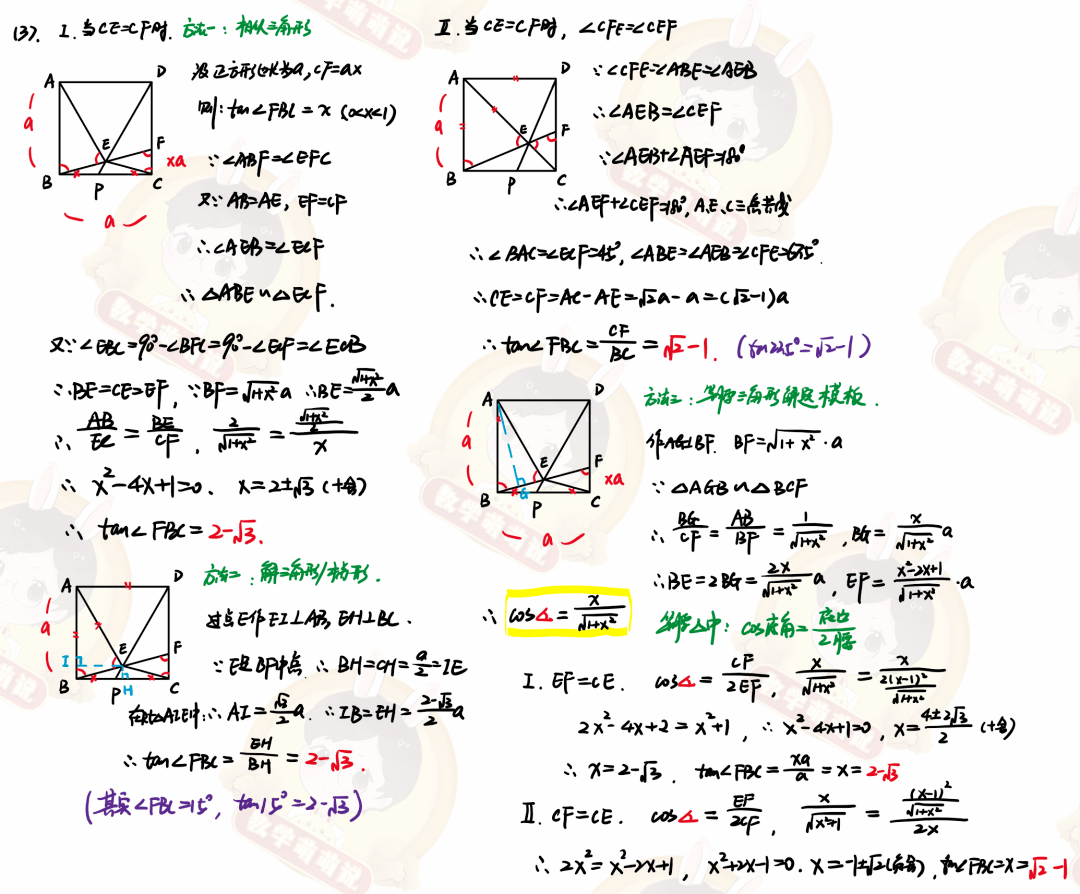 (3). Ⅰ. 当CE=CF时. 方法一：相似三角形
设正方形边长为a, CF=ax
则: tan∠FBC = x (0<x<1)
∵∠ABF=∠EFC
又∵AB=AE, EF=CF
∴∠AEB=∠ECF
∴△ABE∽△ECF.
又∵∠EBC=90°-∠BFC=90°-∠ECF=∠ECB
∴BE=CE=EF, ∵BF=√(1+x²)a ∴BE=√(1+x²)/2 a
∴ AB/EC = BE/CF, 2/√(1+x²) = (√(1+x²)/2)/x
∴ x²-4x+1=0. x=2±√3 (+舍)
∴ tan∠FBC=2-√3.
A D E F B P C a xa a
方法二：解三角形/梯形.
过点E作EI⊥AB, EH⊥BC.
∵E是BF中点 ∴BH=CH=a/2=IE
在Rt△AIE中: ∴AI=√3/2 a. ∴IB=EH=(2-√3)/2 a
∴tan∠FBC=EH/BH=2-√3.
(其实∠FBC=15°, tan15°=2-√3)
A D E F I B P H C a
Ⅱ. 当CE=CF时, ∠CFE=∠CEF
∵∠CFE=∠ABE=∠AEB
∴∠AEB=∠CEF
∵∠AEB+∠AEF=180°
∴∠AEF+∠CEF=180°, A.E.C三点共线
∴∠BAC=∠ECF=45°, ∠ABE=∠AEB=∠CFE=67.5°.
∴CE=CF=AC-AE=√2a-a=(√2-1)a
∴tan∠FBC=CF/BC=√2-1. (tan22.5°=√2-1)
A D E F B P C a
方法三：等腰三角形解题模板.
作AG⊥BF. BF=√(1+x²)·a
∵△AGB∽△BCF
∴ BG/CF=AB/BF=1/√(1+x²), BG=x/√(1+x²) a
∴BE=2BG=2x/√(1+x²) a, EF=(x²-2x+1)/√(1+x²)·a
A D E F B G P C a xa a
∴ cos∠=x/√(1+x²) 等腰△中: cos底角=底边/2腰
Ⅰ. EF=CE. cos∠=CF/2EF, x/√(1+x²)=x/(2(x-1)²/√(1+x²))
2x²-4x+2=x²+1, ∴x²-4x+1=0, x=(4±2√3)/2 (+舍)
∴x=2-√3. tan∠FBC=xa/a=x=2-√3
Ⅱ. CF=CE. cos∠=EF/2CF, x/√(x²+1)=((x-1)²/√(1+x²))/2x
∴2x²=x²-2x+1, x²+2x-1=0. x=-1±√2(负舍), tan∠FBC=x=√2-1
数学萌萌说